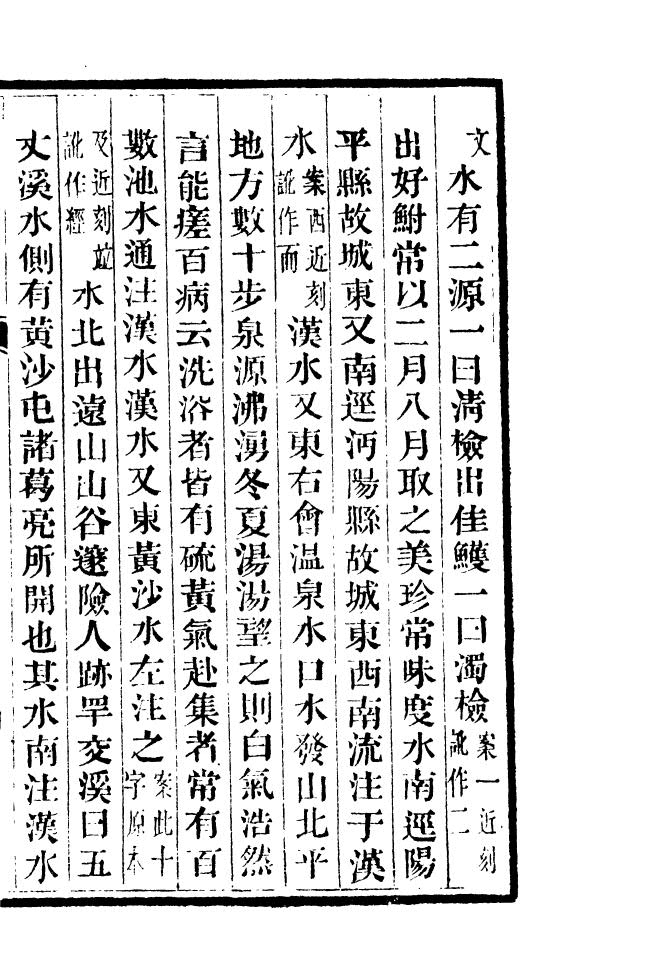 文水有二源一曰清檢出佳鱯一曰濁檢案一近刻訛作二
出好鮒常以二月八月取之美珍常味度水南逕陽
平縣故城東又南逕沔陽縣故城東西南流注于漢
水案西近刻訛作而漢水又東右會温泉水口水發山北平
地方數十步泉源沸湧冬夏湯湯望之則白氣浩然
言能瘥百病云洗浴者皆有硫黃氣赴集者常有百
數池水通注漢水漢水又東黃沙水左注之案此十字原本
及近刻竝訛作經水北出遠山山谷邃險人跡罕交溪曰五
丈溪水側有黃沙屯諸葛亮所開也其水南注漢水